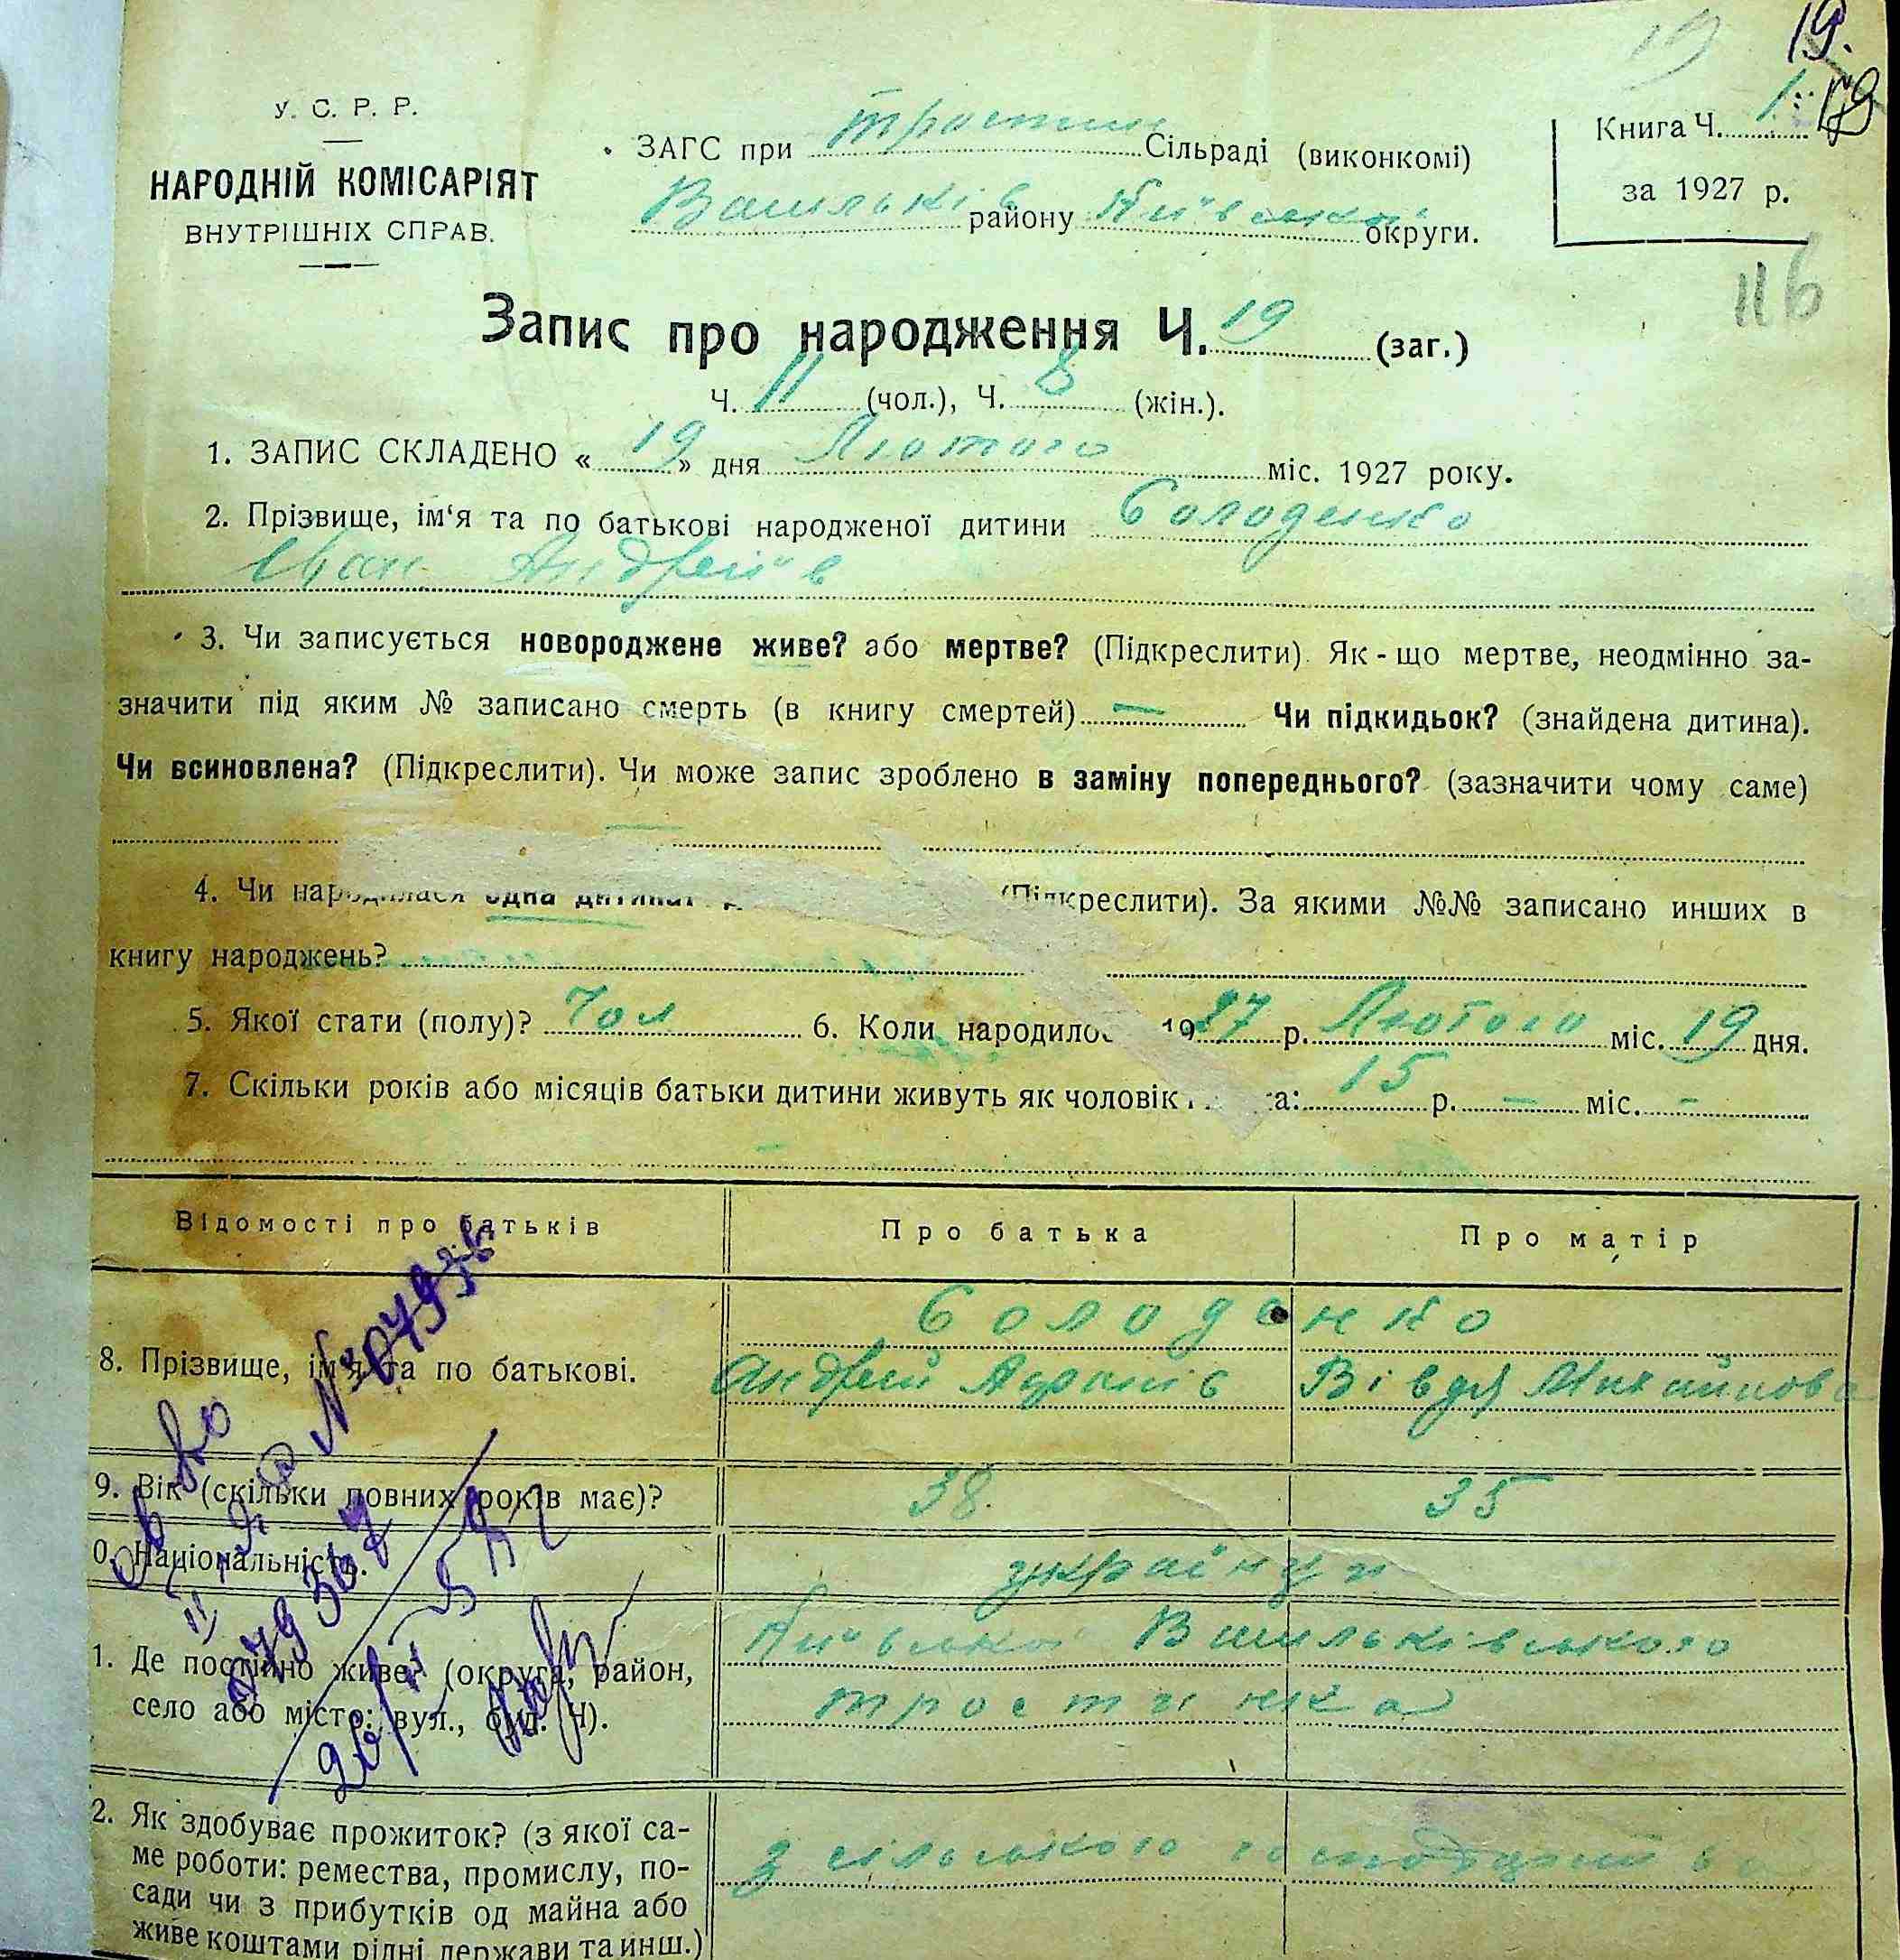 19 19.
У. С. Р. Р.
НАРОДНІЙ КОМІСАРІЯТ
ВНУТРІШНІХ СПРАВ.
ЗАГС при Тростин Сільраді (виконкомі)
Васильків району Київської округи.
Книга Ч. 1
за 1927 р.
116
Запис про народження Ч. 19 (заг.)
Ч. 11 (чол.), Ч. 8 (жін.).
1. ЗАПИС СКЛАДЕНО « 19 » дня Лютого міс. 1927 року.
2. Прізвище, ім‘я та по батькові народженої дитини Солоденко
Іван Андреїв
3. Чи записується новороджене живе? або мертве? (Підкреслити). Як-що мертве, неодмінно за-
значити під яким № записано смерть (в книгу смертей) — Чи підкидьок? (знайдена дитина).
Чи всиновлена? (Підкреслити). Чи може запис зроблено в заміну попереднього? (зазначити чому саме)
—
4. Чи народилася одна дитина? (Підкреслити). За якими №№ записано инших в
книгу народжень?
5. Якої стати (полу)? Чол 6. Коли народилос 1927 р. Лютого міс. 19 дня.
7. Скільки років або місяців батьки дитини живуть як чоловік а: 15 р. — міс. -
Відомості про батьків Про батька Про матір
Солоденко
8. Прізвище, ім'я та по батькові. Андрей Вівдя Михайлова
9. Вік (скільки повних років має)? 38 35
0. Національність. українци
1. Де постійно живе? (округа, район, Київської Васильківського
село або місто; вул., буд. Ч). Тростинка
2. Як здобуває прожиток? (з якої са-
ме роботи: ремества, промислу, по- З сільського господарства
сади чи з прибутків од майна або
живе коштами рідні, держави та инш.)